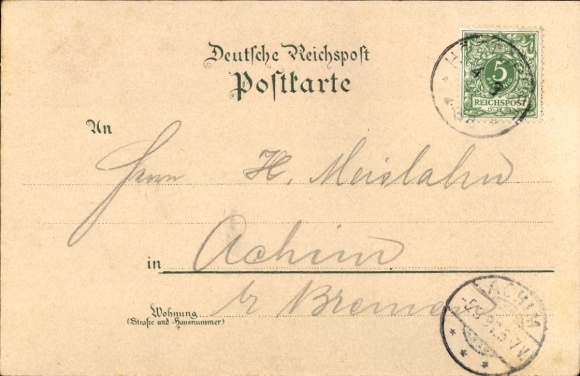 Deutsche Reichspost
Postkarte
5
REICHSPOST
An
Herrn H. Meislahn
in Achim
b/ Bremen
Wohnung
(Straße und Hausnummer)
ACHIM